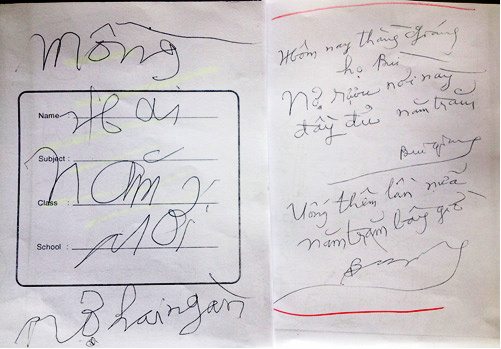 Mồng
Name Hai
Subject :
Class : Năm
School : Mới
Nợ hai ngàn
Hôm nay thằng Giáng
họ Bùi
Nợ rượu nơi này
đầy đủ năm trăm
Bùi Giáng
Uống thêm lần nữa
năm trăm bây giờ